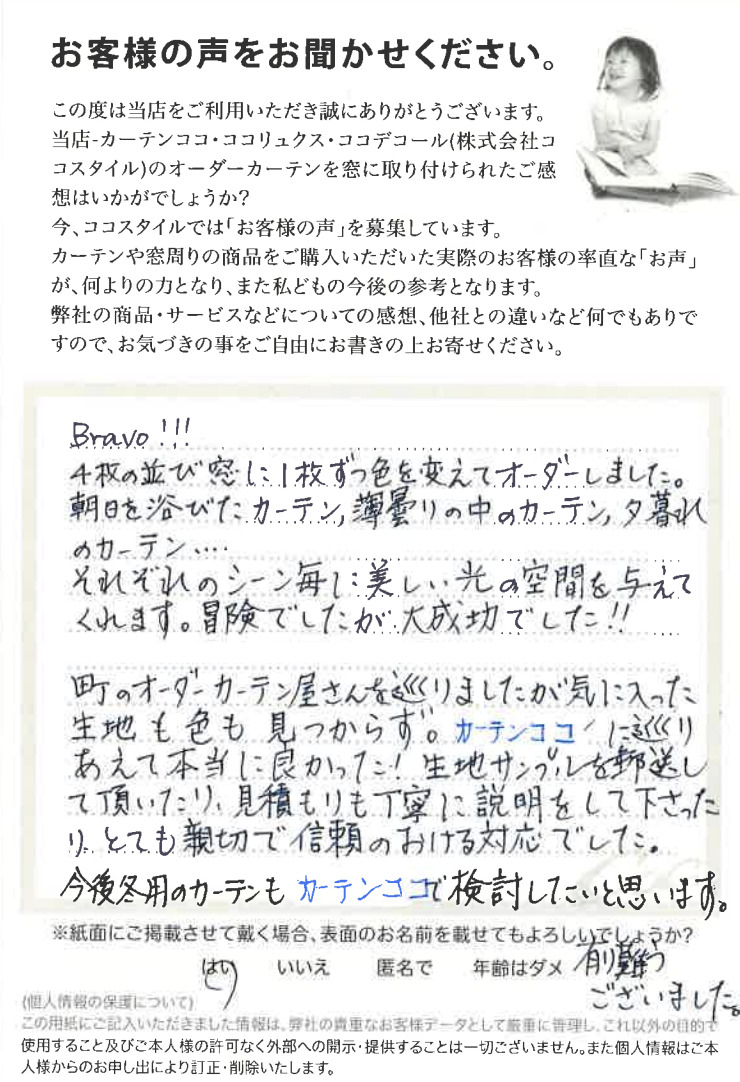 お客様の声をお聞かせください。
この度は当店をご利用いただき誠にありがとうございます。
当店-カーテンココ・ココリュクス・ココデコール(株式会社コ
コスタイル)のオーダーカーテンを窓に取り付けられたご感
想はいかがでしょうか?
今、ココスタイルでは「お客様の声」を募集しています。
カーテンや窓周りの商品をご購入いただいた実際のお客様の率直な「お声」
が、何よりの力となり、また私どもの今後の参考となります。
弊社の商品・サービスなどについての感想、他社との違いなど何でもありで
すので、お気づきの事をご自由にお書きの上お寄せください。
Bravo!!!
4枚の並び窓に1枚ずつ色を変えてオーダーしました。
朝日を浴びたカーテン,薄曇りの中のカーテン,夕暮れ
のカーテン····
それぞれのシーン毎に美しい光の空間を与えて
くれます。冒険でしたが大成功でした!!
町のオーダーカーテン屋さんを巡りましたが気に入った
生地も色も見つからず。カーテンココに巡り
あえて本当に良かった!生地サンプルを郵送し
て頂いたり、見積もりも丁寧に説明をして下さった
り、とても親切で信頼のおける対応でした。
今後冬用のカーテンもカーテンココで検討したいと思います。
※紙面にご掲載させて戴く場合、表面のお名前を載せてもよろしいでしょうか?
はい いいえ 匿名で 年齢はダメ
有り難う
ございました。
(個人情報の保護について)
この用紙にご記入いただきました情報は、弊社の貴重なお客様データとして厳重に管理し、これ以外の目的で
使用すること及びご本人様の許可なく外部への開示・提供することは一切ございません。また個人情報はご本
人様からのお申し出により訂正・削除いたします。